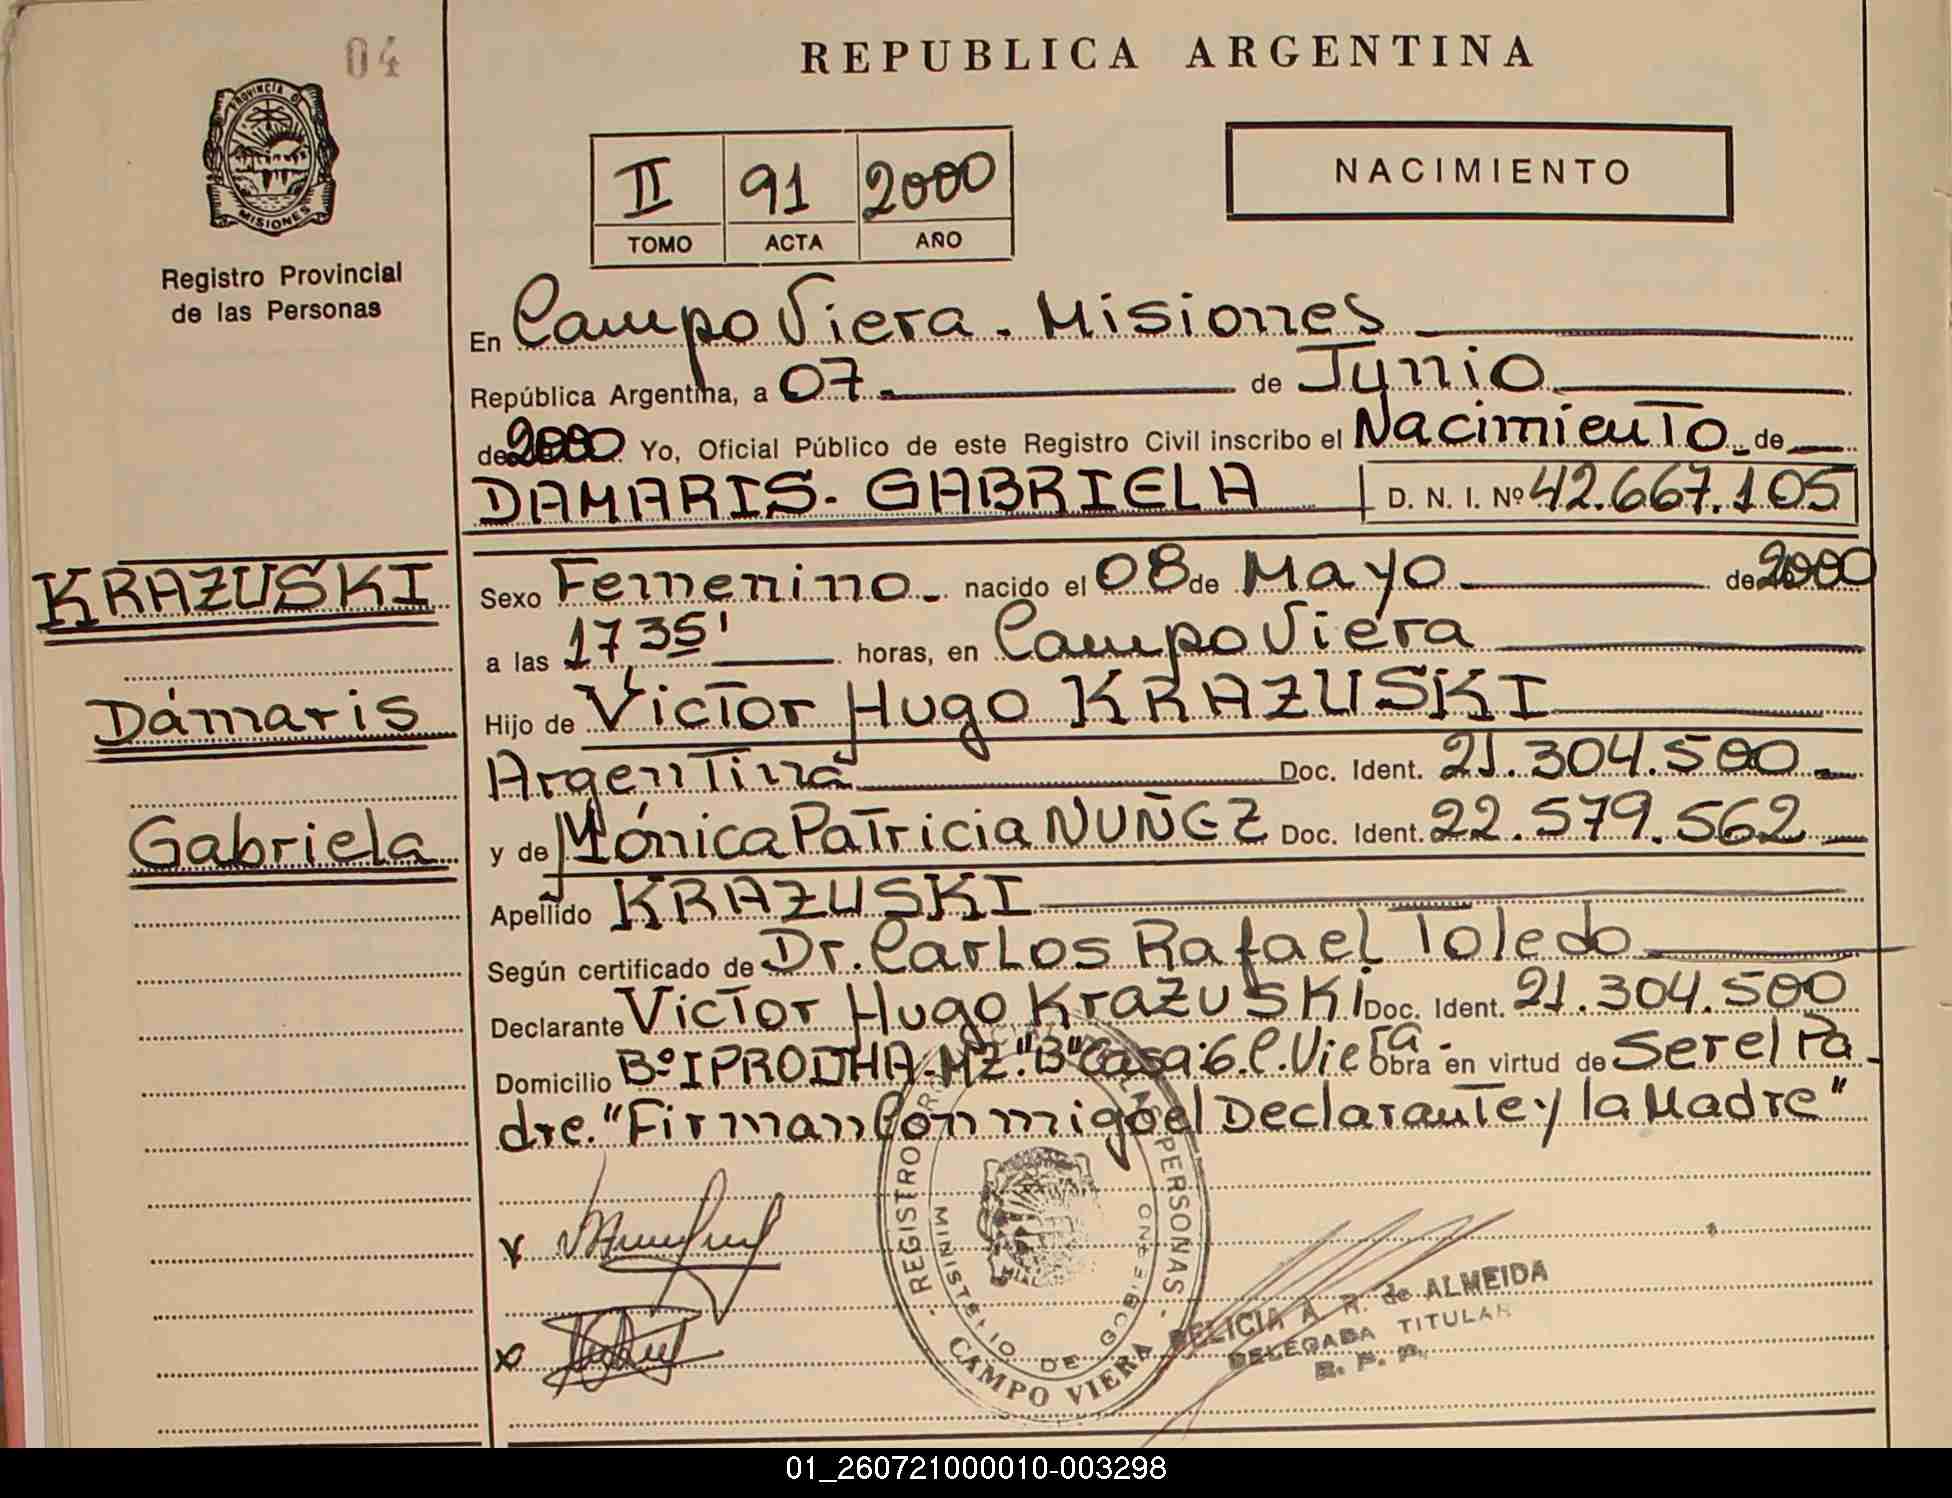 04
REPUBLICA ARGENTINA
PROVINCIA D
MISIONES
Registro Provincial
de las Personas
II 91 2000
TOMO ACTA AÑO
NACIMIENTO
En Campo Viera. Misiones
República Argentina, a 07. de Junio
de 2000 Yo, Oficial Público de este Registro Civil inscribo el Nacimiento de
DAMARIS. GABRIELA D. N. I. Nº 42.667.105
KRAZUSKI
Dámaris
Gabriela
Sexo Femenino nacido el 08 de Mayo de 2000
a las 17 35' horas, en Campo Viera
Hijo de Víctor Hugo KRAZUSKI
Argentina Doc. Ident. 21.304.500
y de Mónica Patricia NUÑEZ Doc. Ident. 22.579.562
Apellido KRAZUSKI
Según certificado de Dr. Carlos Rafael Toledo
Declarante Victor Hugo Krazuski Doc. Ident. 21.304.500
Domicilio Bº IPRODHA. MZ. "B" Casa 6. C. Viera. Obra en virtud de Ser el Pa
dre. "Firman Conmigo el Declarante y la Madre"
REGISTRO PERSONAS
MINISTERIO DE GOBIERNO
CAMPO VIERA
DELICIA A. R. de ALMEIDA
DELEGADA TITULAR
R. P. P.
01_260721000010-003298